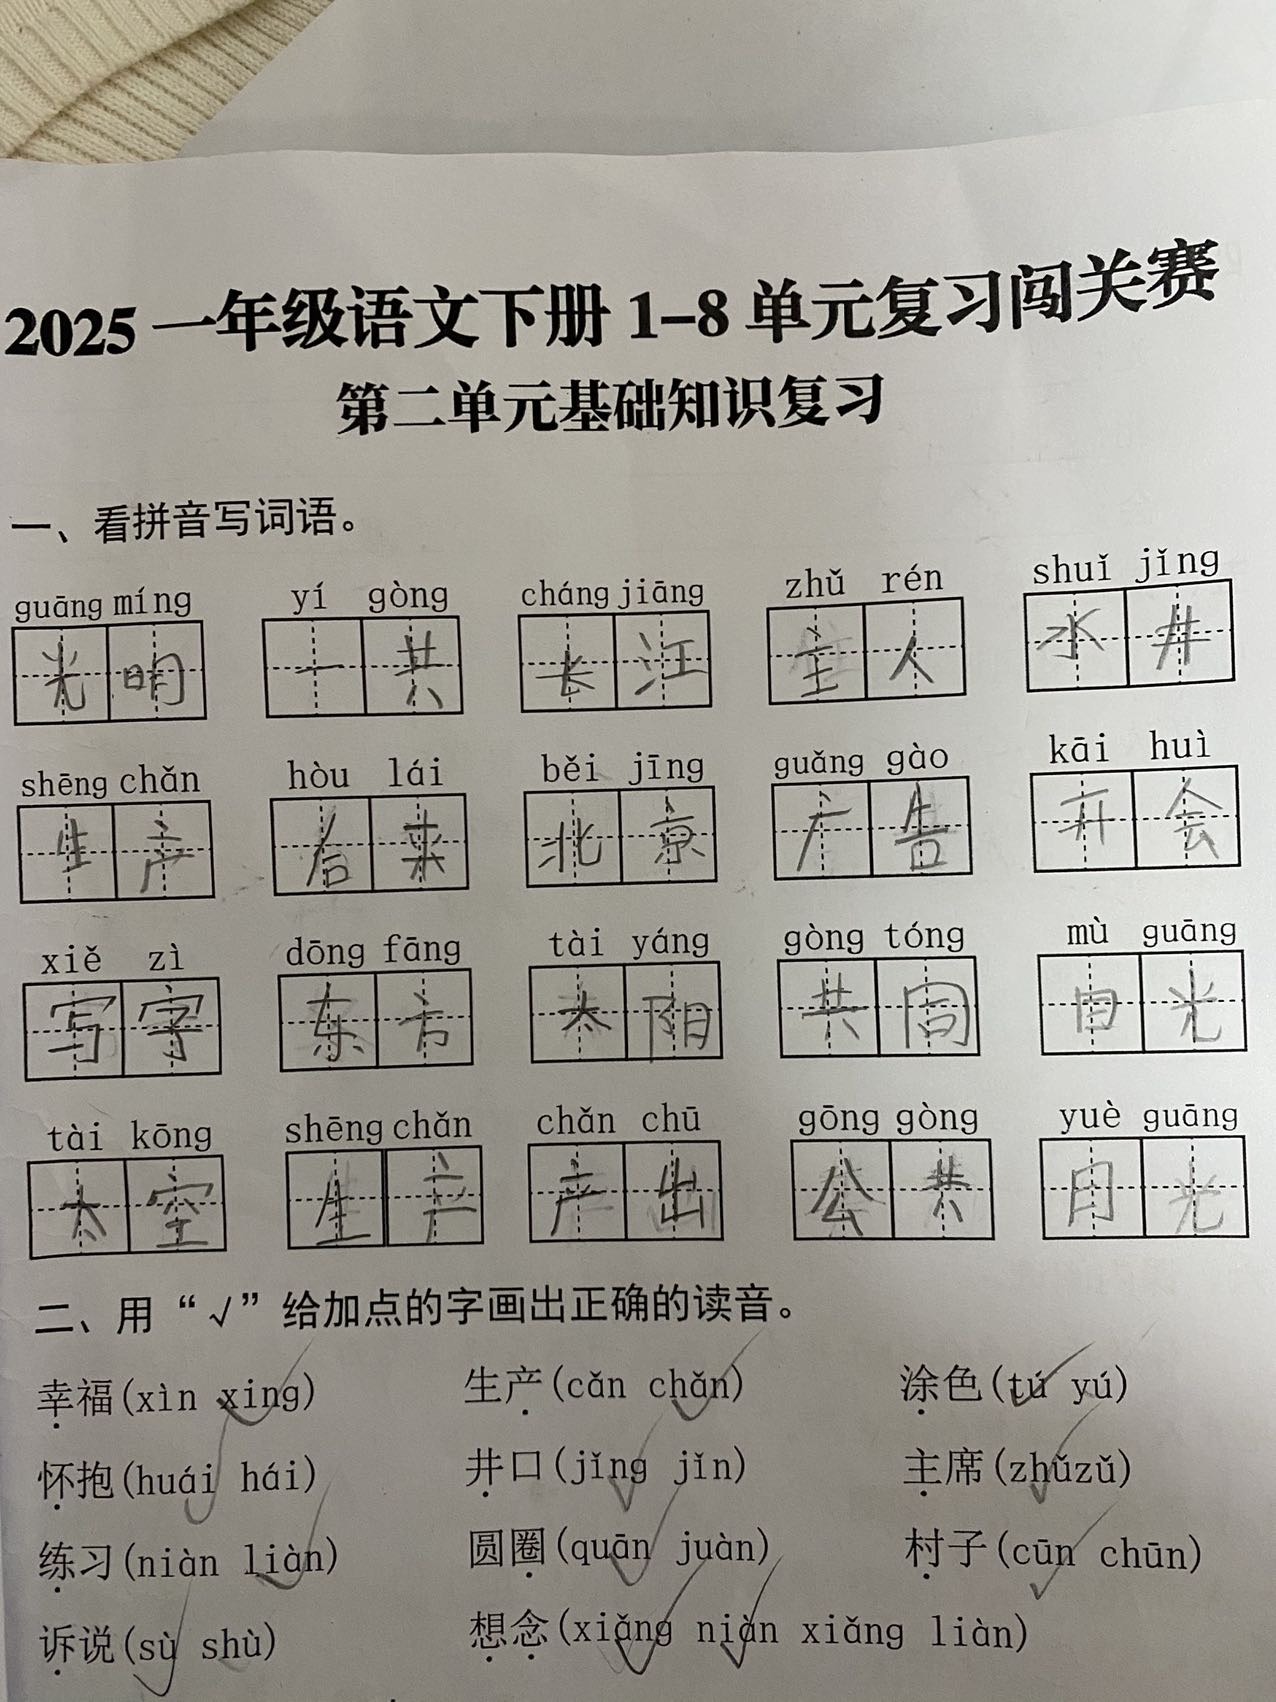 2025 一年级语文下册 1-8 单元复习闯关赛
第二单元基础知识复习
一、看拼音写词语。
guāng míng yí gòng cháng jiāng zhǔ rén shuǐ jǐng
光明 一共 长江 主人 水井
shēng chǎn hòu lái běi jīng guǎng gào kāi huì
生产 后来 北京 广告 开会
xiě zì dōng fāng tài yáng gòng tóng mù guāng
写字 东方 太阳 共同 目光
tài kōng shēng chǎn chǎn chū gōng gòng yuè guāng
太空 生产 产出 公共 月光
二、用“√”给加点的字画出正确的读音。
幸福(xìn xing) 生产(cǎn chǎn) 涂色(tú yú)
怀抱(huái hái) 井口(jǐng jǐn) 主席(zhǔzǔ)
练习(niàn liàn) 圆圈(quān juàn) 村子(cūn chūn)
诉说(sù shù) 想念(xiǎng niàn xiǎng liàn)